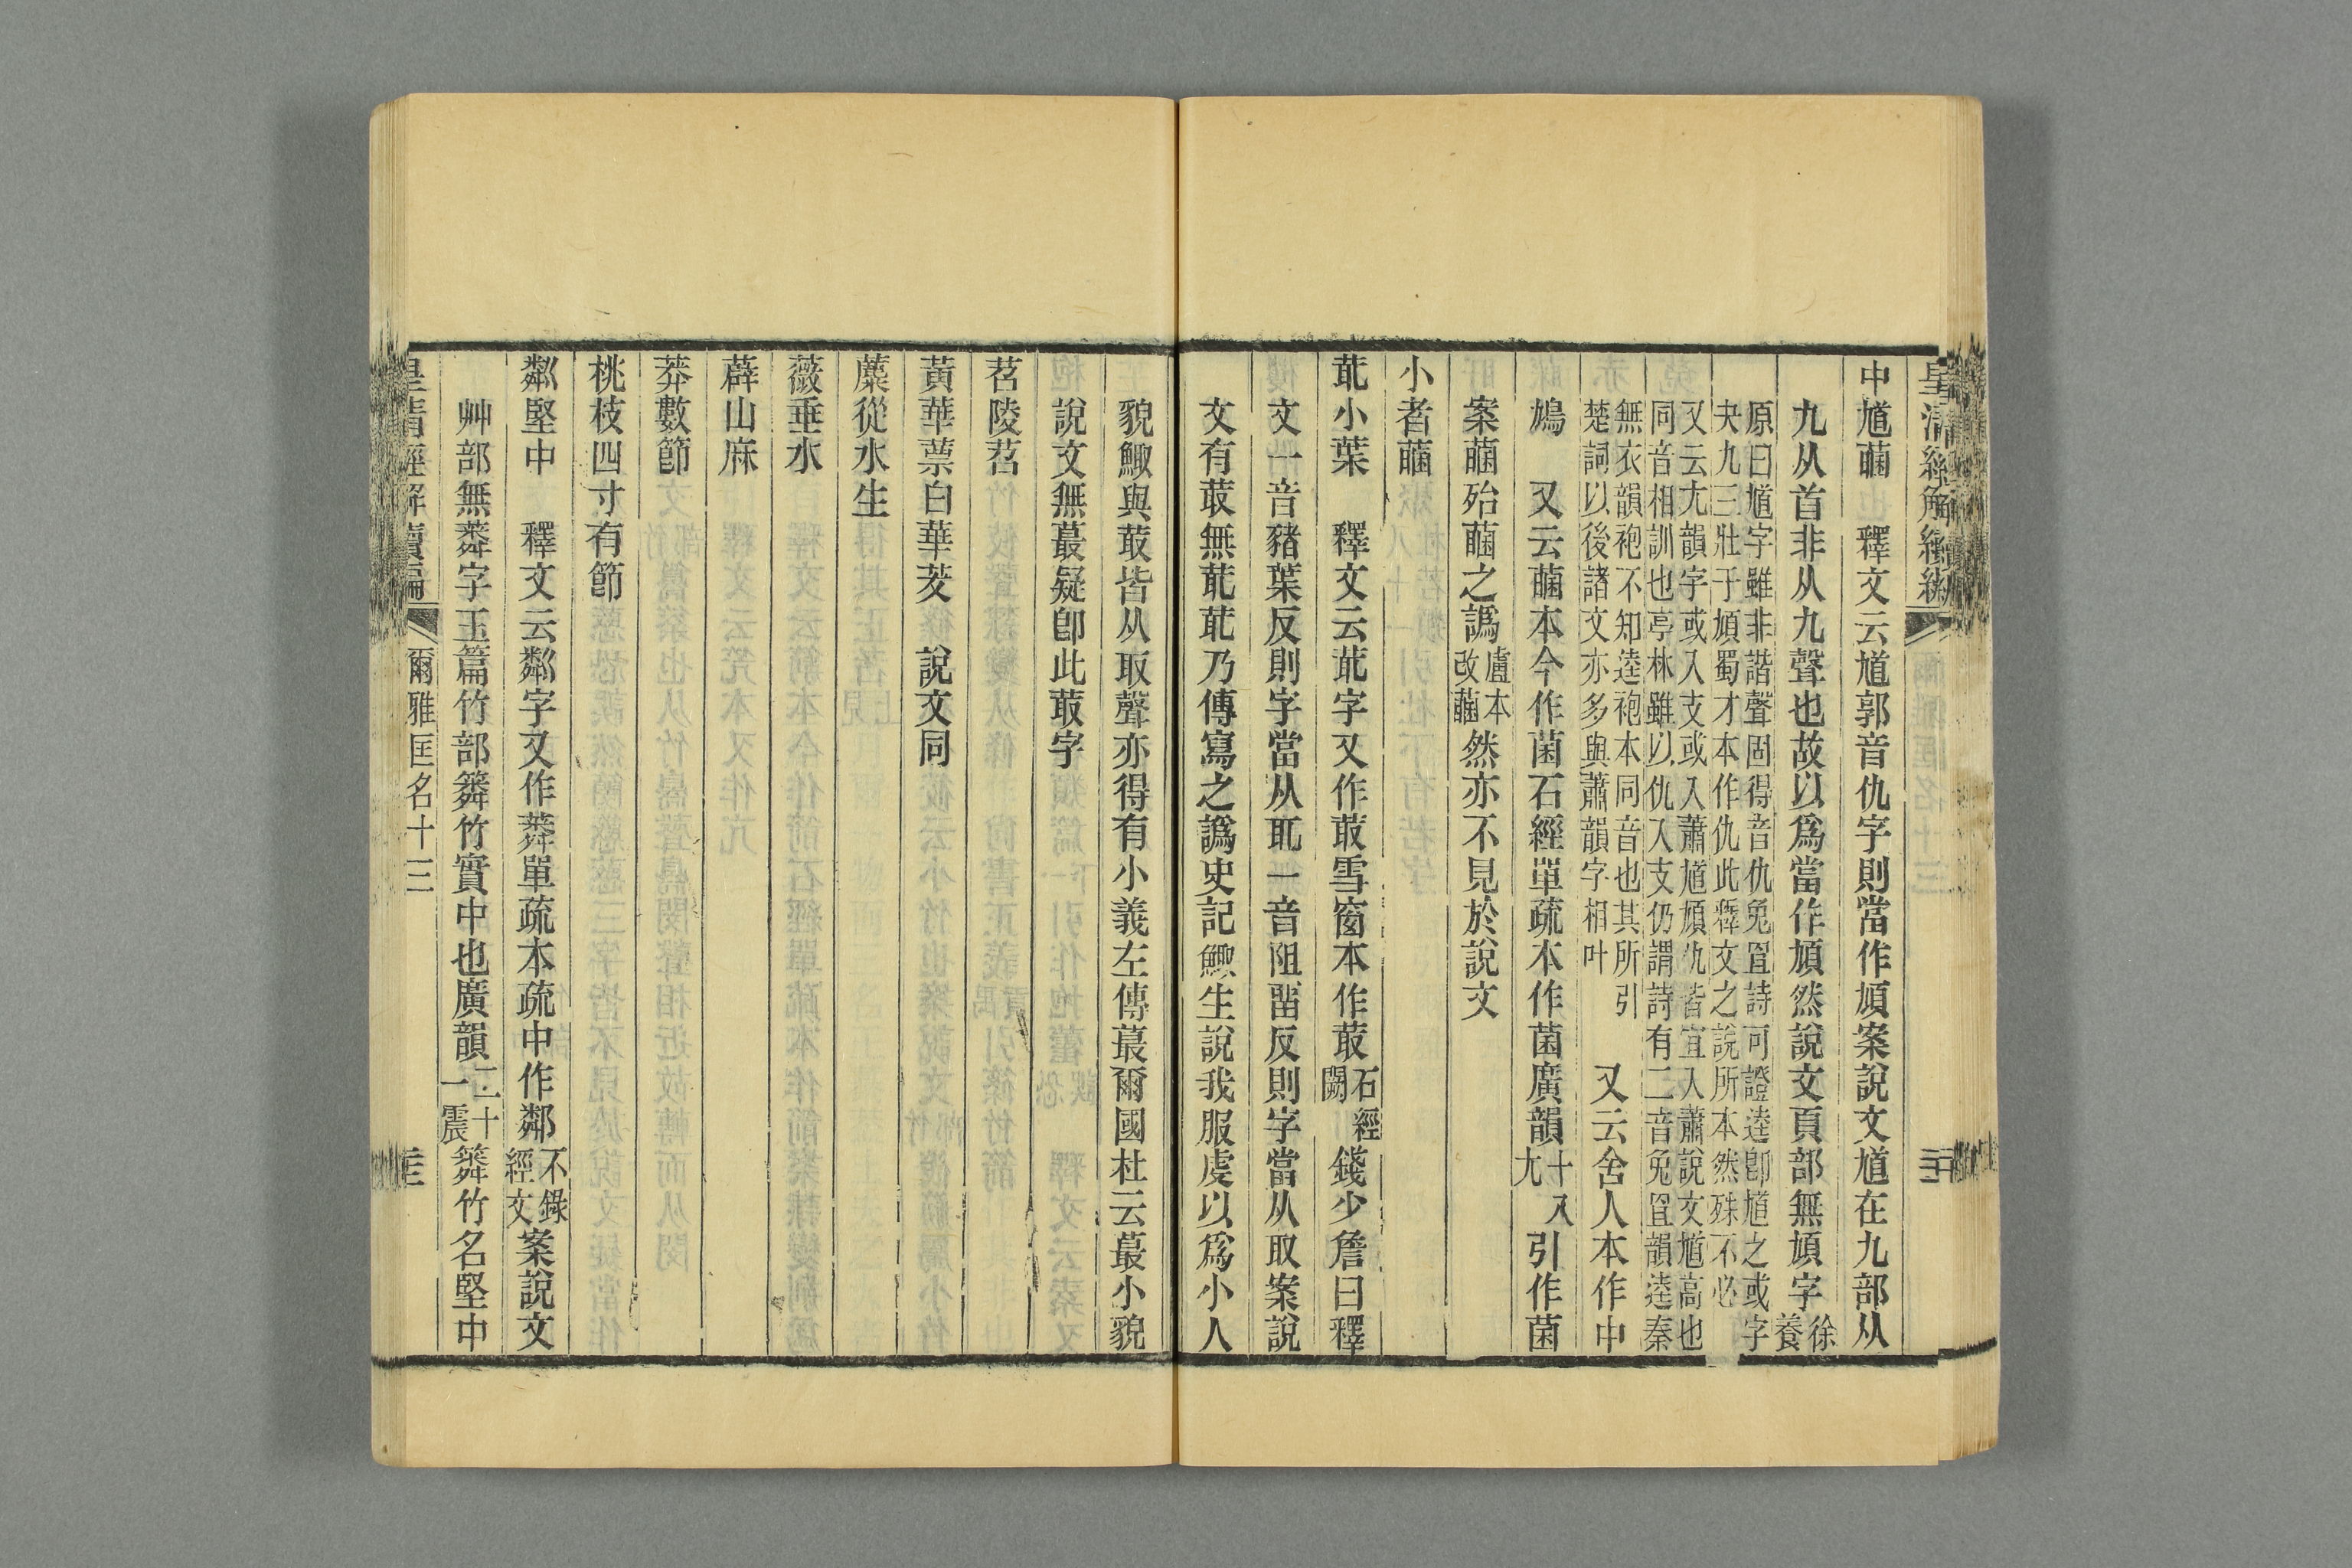 皇清經解續編
中馗菌　釋文云馗郭音仇字則當作頄案說文馗在九部从
九从首非从九聲也故以爲當作頄然說文頁部無頄字徐養
原曰馗字雖非諧聲固得音仇兔罝詩可證逵卽馗之或字
夬九三壯于頄蜀才本作仇此釋文之說所本然殊不必
又云尢韻字或入支或入蕭馗頄仇皆宜入蕭說文馗高也
同音相訓也亭林雖以仇入支仍謂詩有二音兔罝韻逵秦
無衣韻袍不知逵袍本同音也其所引
楚詞以後諸文亦多與蕭韻字相叶　又云舍人本作中
鳩　又云菌本今作菌石經單疏本作菌廣韻十八尢引作菌
案菌殆菌之譌盧本改菌然亦不見於說文
小者菌
菆小葉　釋文云菆字又作菆雪窗本作菆石經闕　錢少詹曰釋
文一音豬葉反則字當从耴一音阻留反則字當从取案說
文有菆無菆菆乃傳寫之譌史記鯫生說我服虔以爲小人
貌鯫與菆皆从取聲亦得有小義左傳蕞爾國杜云蕞小貌
說文無蕞疑卽此菆字
苕陵苕
黃華蔈白華茇　說文同
蘪從水生
薇垂水
薜山麻
莽數節
桃枝四寸有節
粼堅中　釋文云粼字又作䔖單疏本疏中作鄰不錄經文案說文
艸部無䔖字玉篇竹部𥳞竹實中也廣韻二十一震𥳞竹名堅中
皇清經解續編
爾雅匡名十三